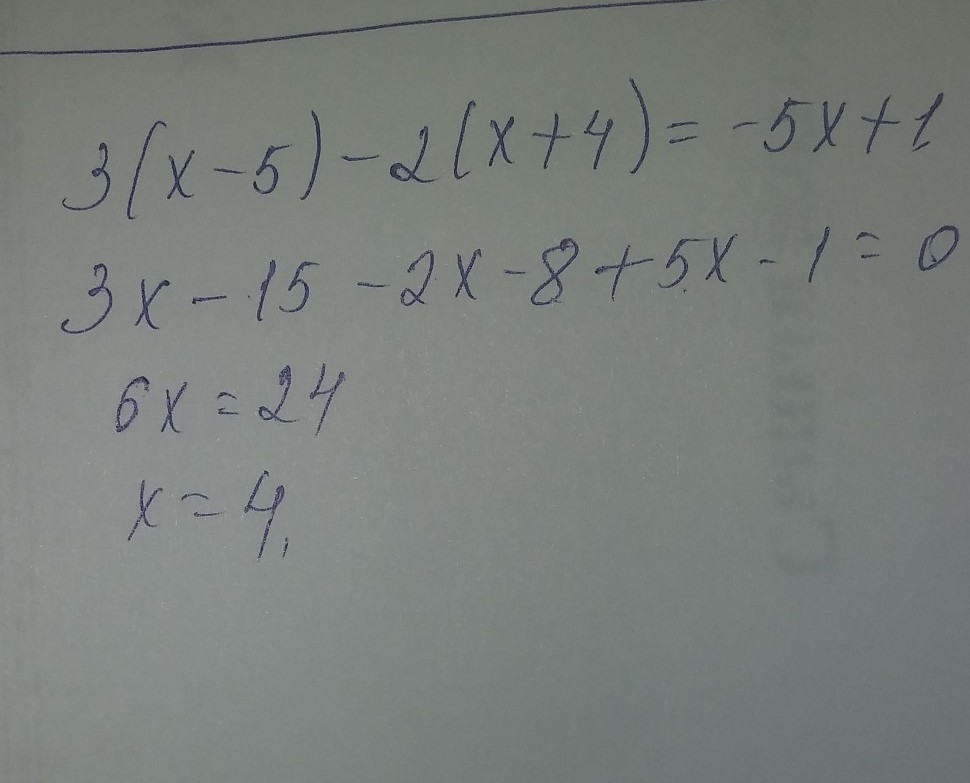 3(x-5)-2(x+4)=-5x+1
3x-15-2x-8+5x-1=0
6x=24
x=4.